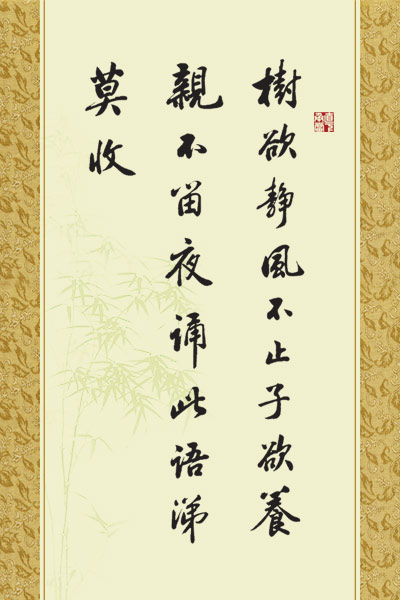 樹欲静風不止子欲養
親不留夜誦此語涕
莫收